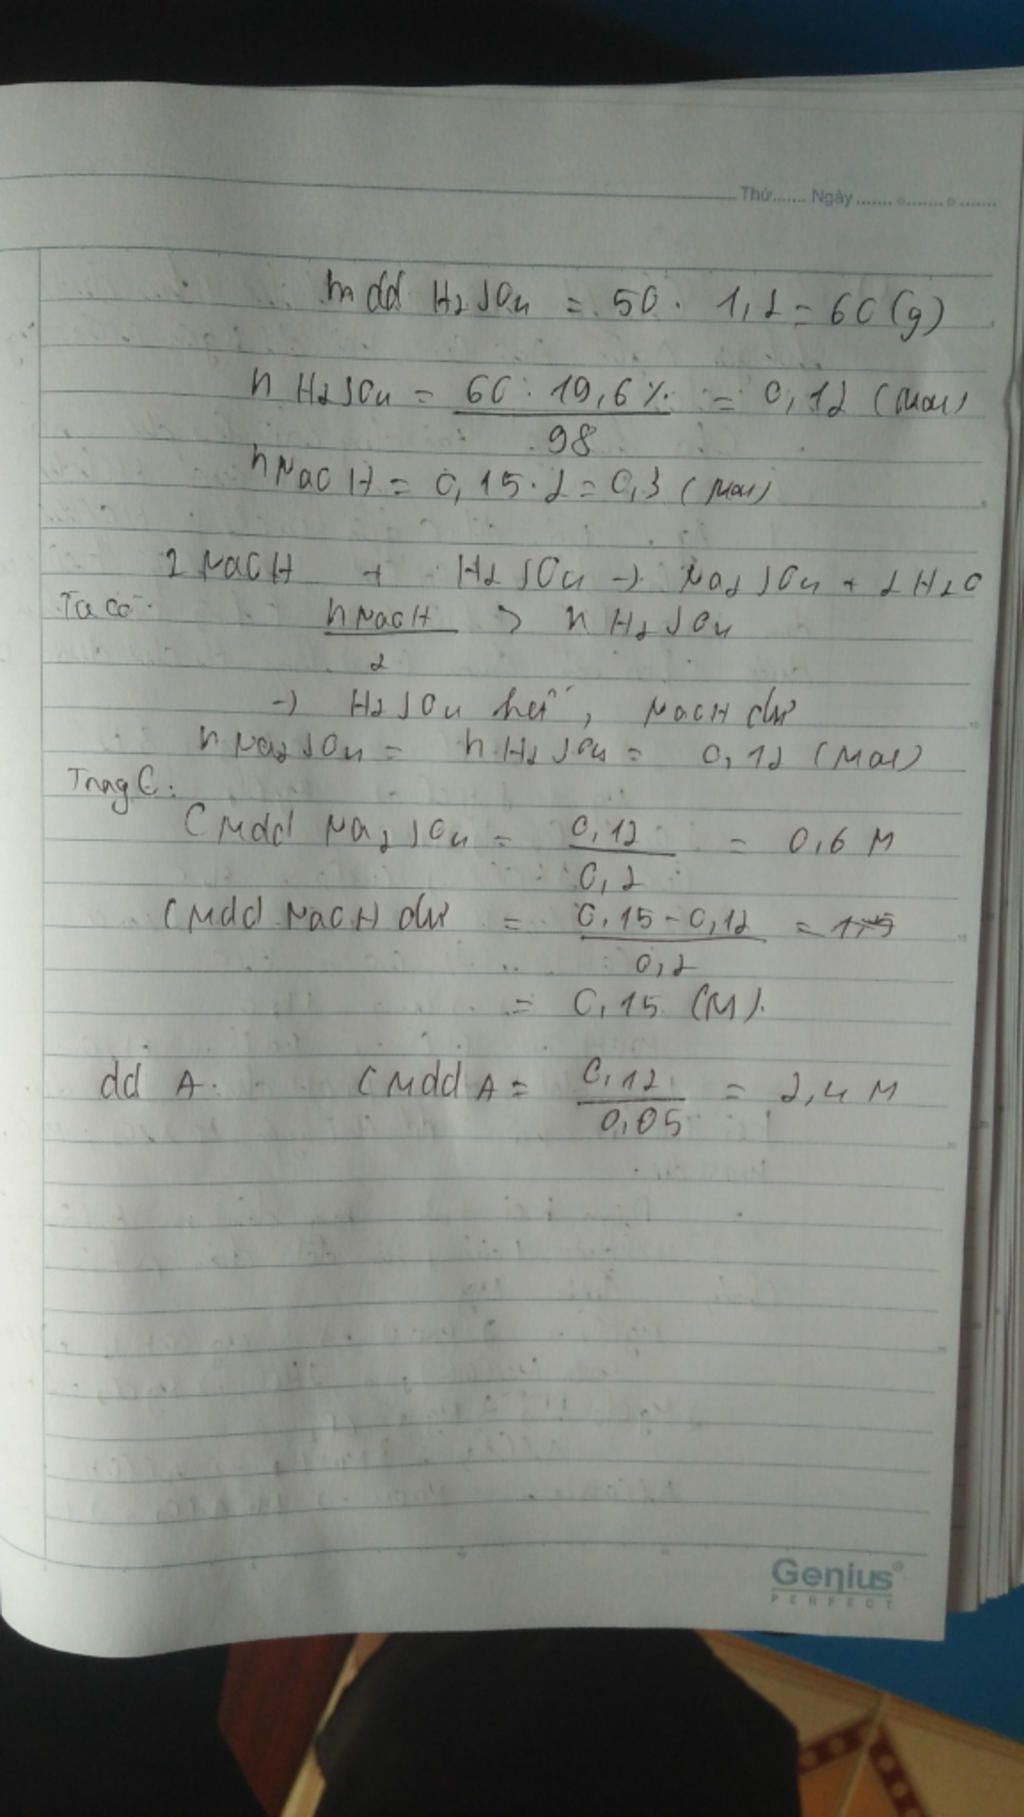 Thứ....... Ngày ....................
mdd H2SO4 = 50 . 1,2 = 60 (g)
n H2SO4 = 60 . 19,6% / 98 = 0,12 (mol)
nNaOH = 0,15 . 2 = 0,3 (mol)
2 NaOH + H2SO4 → Na2SO4 + 2H2O
Ta có: nNaOH / 2 > n H2SO4
→ H2SO4 hết, NaOH dư
n Na2SO4 = n H2SO4 = 0,12 (mol)
Trong C:
CMdd Na2SO4 = 0,12 / 0,2 = 0,6 M
CMdd NaOH dư = 0,15 - 0,12 / 0,2
= 0,15 (M).
dd A: CMdd A = 0,12 / 0,05 = 2,4 M
Genius
PERFECT